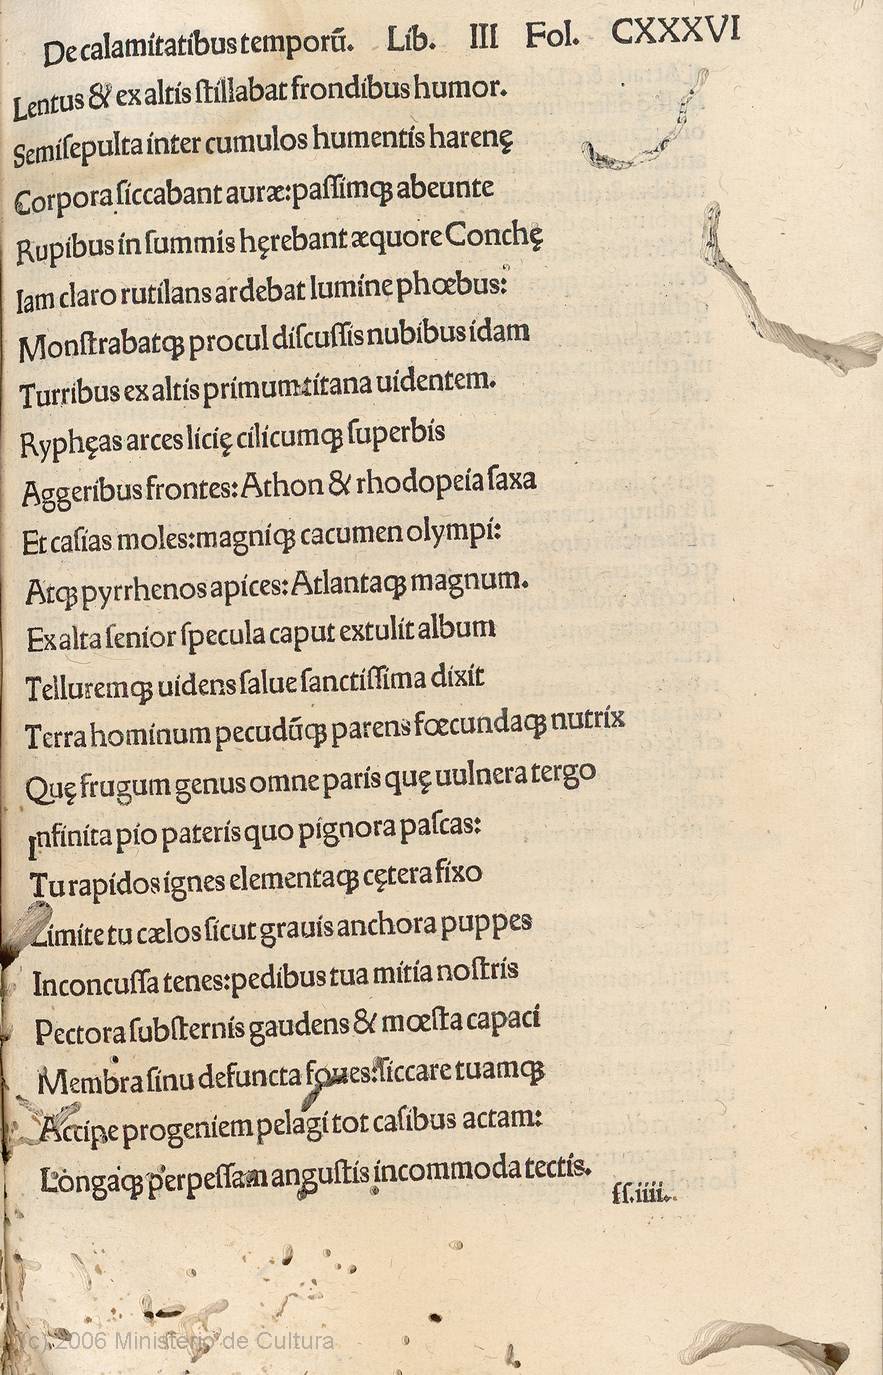 De calamitatibus temporū. Lib. III Fol. CXXXVI
Lentus & ex altis ſtillabat frondibus humor.
Semiſepulta inter cumulos humentis harenę
Corpora ſiccabant auræ: paſſimqꝫ abeunte
Rupibus in ſummis hęrebant æquore Conchę
Iam claro rutilans ardebat lumine phœbus:
Monſtrabatqꝫ procul diſcuſſis nubibus idam
Turribus ex altis primum titana uidentem.
Ryphęas arces licię cilicumqꝫ ſuperbis
Aggeribus frontes: Athon & rhodopeia ſaxa
Et caſias moles: magniqꝫ cacumen olympi:
Atqꝫ pyrrhenos apices: Atlantaqꝫ magnum.
Ex alta ſenior ſpecula caput extulit album
Telluremqꝫ uidens ſalue ſanctiſſima dixit
Terra hominum pecudūqꝫ parens fœcundaqꝫ nutrix
Quę frugum genus omne paris quę uulnera tergo
Infinita pio pateris quo pignora paſcas:
Tu rapidos ignes elementaqꝫ cętera fixo
Limite tu cælos ſicut grauis anchora puppes
Inconcuſſa tenes: pedibus tua mitia noſtris
Pectora ſubſternis gaudens & mœſta capaci
Membra ſinu defuncta foues: ſiccare tuamqꝫ
Accipe progeniem pelagi tot caſibus actam:
Longaqꝫ perpeſſam anguſtis incommoda tectis.
ſſ.iiii.
(c) 2006 Ministerio de Cultura